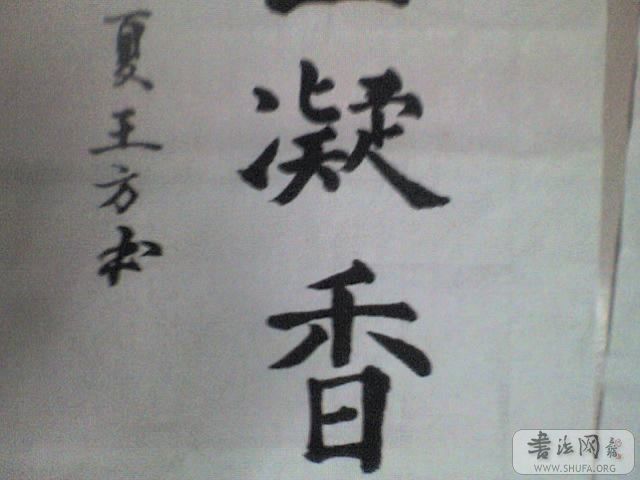 凝香
夏王方书
书法网
WWW.SHUFA.ORG